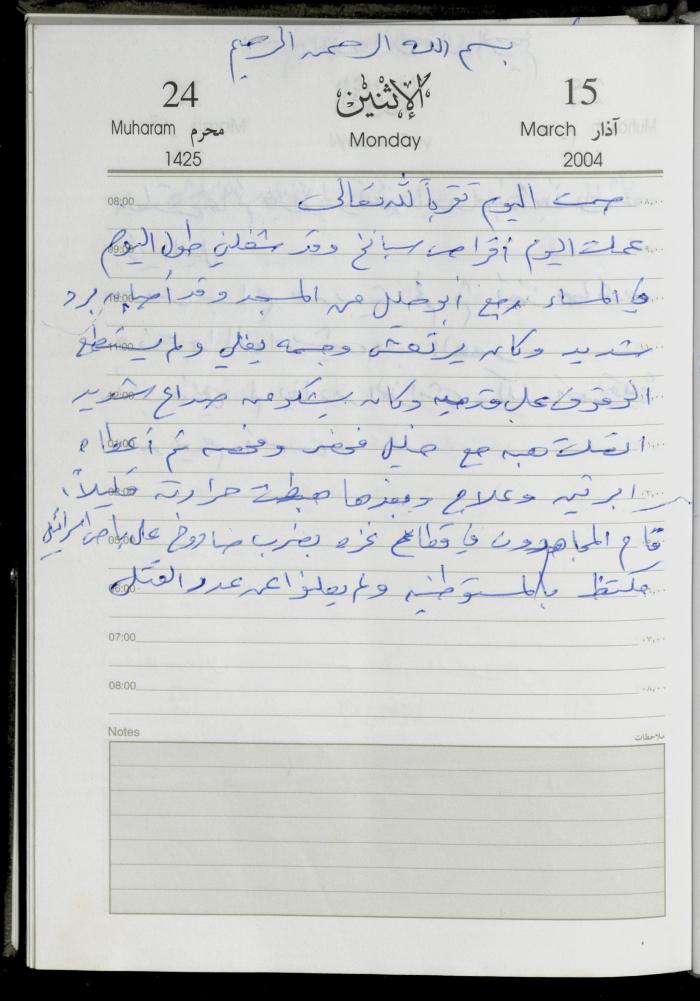 بسم الله الرحمن الرحيم
24 الإثنين 15
Muharam محرم Monday March آذار
1425 2004
08:00 صمت اليوم تقرباً لله تعالى ٠٨,٠٠
09:00 عملت اليوم أقراص سبانخ وقد شغلني طول اليوم
10:00 في المساء رجع أبو خليل من المسجد وقد أصابه برد
11:00 شديد وكان يرتعش وجسمه يغلي ولم يستطع
الوقوف على قدميه وكان يشكو من صداع شديد
اتصلت هبه مع خليل فحضر وفحصه ثم أعطاه
ابرتين وعلاج وبعدها هبطت حرارته قليلاً
05:00 قام المجاهدون في قطاع غزه بضرب صاروخ على باص اسرائيلي
06:00 مكتظ بالمستوطنين ولم يعلنوا عن عدد القتلى
07:00 ٠٧,٠٠
08:00 ٠٨,٠٠
Notes ملاحظات